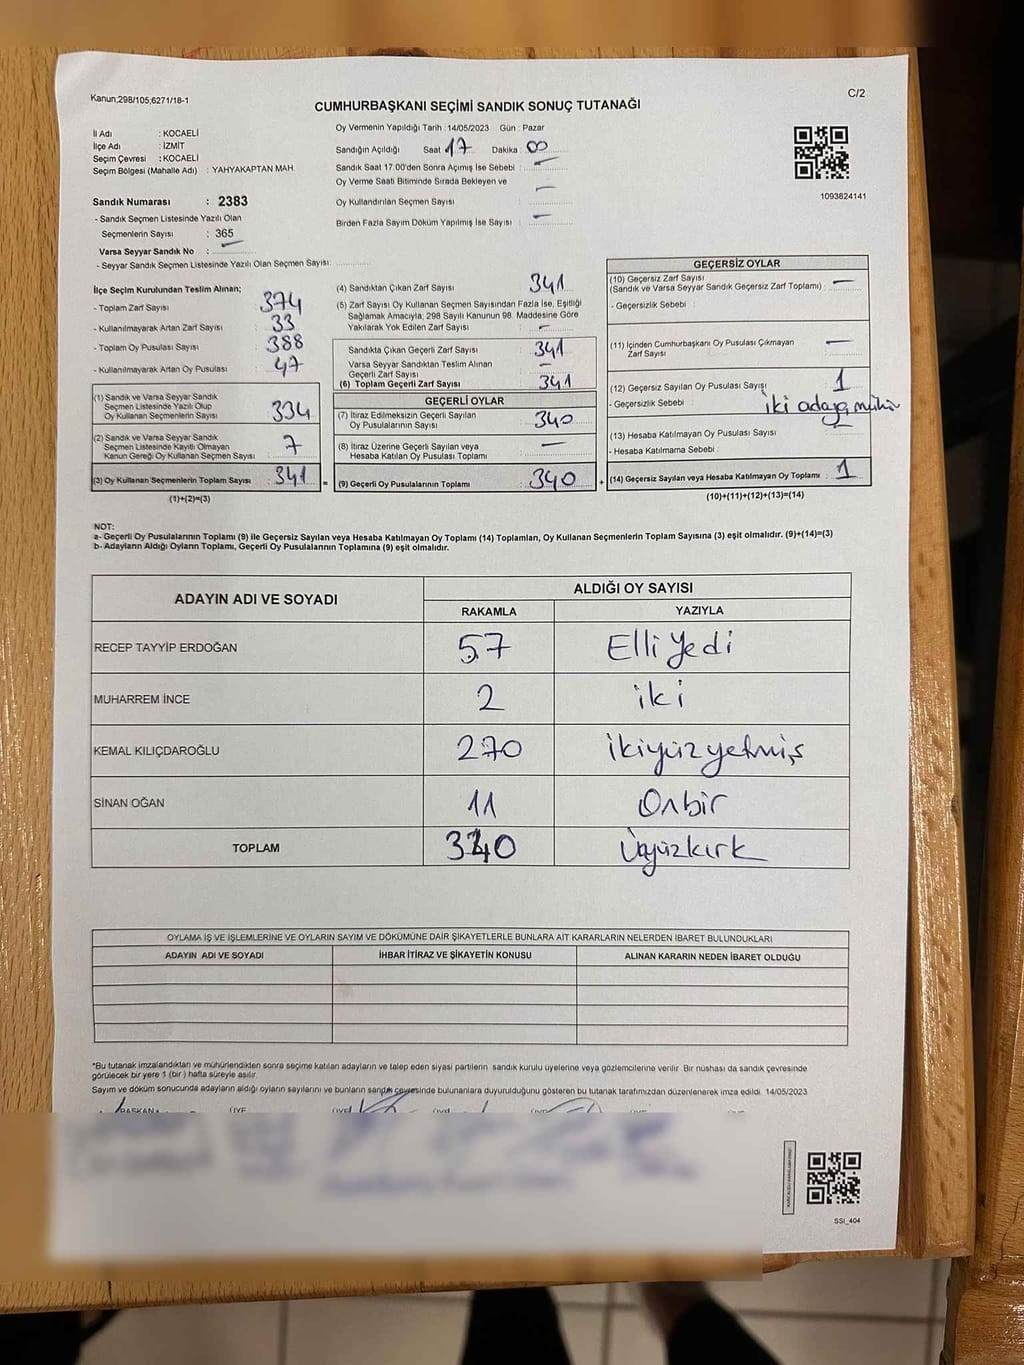 Kanun;298/105;6271/18-1
C/2
CUMHURBAŞKANI SEÇİMİ SANDIK SONUÇ TUTANAĞI
İl Adı : KOCAELİ
İlçe Adı : İZMİT
Seçim Çevresi : KOCAELİ
Seçim Bölgesi (Mahalle Adı) : YAHYAKAPTAN MAH.
Sandık Numarası : 2383
- Sandık Seçmen Listesinde Yazılı Olan
Seçmenlerin Sayısı : 365
Varsa Seyyar Sandık No : —
- Seyyar Sandık Seçmen Listesinde Yazılı Olan Seçmen Sayısı:
Oy Vermenin Yapıldığı Tarih : 14/05/2023 Gün : Pazar
Sandığın Açıldığı Saat 17 Dakika 00
Sandık Saat 17.00'den Sonra Açımış İse Sebebi : —
Oy Verme Saati Bitiminde Sırada Bekleyen ve
Oy Kullandırılan Seçmen Sayısı : —
Birden Fazla Sayım Döküm Yapılmış İse Sayısı : —
1093824141
İlçe Seçim Kurulundan Teslim Alınan;
- Toplam Zarf Sayısı : 374
- Kullanılmayarak Artan Zarf Sayısı : 33
- Toplam Oy Pusulası Sayısı : 388
- Kullanılmayarak Artan Oy Pusulası : 47
(1) Sandık ve Varsa Seyyar Sandık
Seçmen Listesinde Yazılı Olup
Oy Kullanan Seçmenlerin Sayısı : 334
(2) Sandık ve Varsa Seyyar Sandık
Seçmen Listesinde Kayıtlı Olmayan
Kanun Gereği Oy Kullanan Seçmen Sayısı : 7
(3) Oy Kullanan Seçmenlerin Toplam Sayısı : 341
(1)+(2)=(3)
(4) Sandıktan Çıkan Zarf Sayısı : 341
(5) Zarf Sayısı Oy Kullanan Seçmen Sayısından Fazla İse, Eşitliği
Sağlamak Amacıyla, 298 Sayılı Kanunun 98. Maddesine Göre
Yakılarak Yok Edilen Zarf Sayısı : —
Sandıkta Çıkan Geçerli Zarf Sayısı : 341
Varsa Seyyar Sandıktan Teslim Alınan
Geçerli Zarf Sayısı : —
(6) Toplam Geçerli Zarf Sayısı : 341
GEÇERLİ OYLAR
(7) İtiraz Edilmeksizin Geçerli Sayılan
Oy Pusulalarının Sayısı : 340
(8) İtiraz Üzerine Geçerli Sayılan veya
Hesaba Katılan Oy Pusulası Toplamı : —
= (9) Geçerli Oy Pusulalarının Toplamı : 340
GEÇERSİZ OYLAR
(10) Geçersiz Zarf Sayısı
(Sandık ve Varsa Seyyar Sandık Geçersiz Zarf Toplamı) : —
- Geçersizlik Sebebi :
(11) İçinden Cumhurbaşkanı Oy Pusulası Çıkmayan
Zarf Sayısı : —
(12) Geçersiz Sayılan Oy Pusulası Sayısı : 1
- Geçersizlik Sebebi : iki adaya mühür
(13) Hesaba Katılmayan Oy Pusulası Sayısı : —
- Hesaba Katılmama Sebebi :
+ (14) Geçersiz Sayılan veya Hesaba Katılmayan Oy Toplamı : 1
(10)+(11)+(12)+(13)=(14)
NOT:
a- Geçerli Oy Pusulalarının Toplamı (9) ile Geçersiz Sayılan veya Hesaba Katılmayan Oy Toplamı (14) Toplamları, Oy Kullanan Seçmenlerin Toplam Sayısına (3) eşit olmalıdır. (9)+(14)=(3)
b- Adayların Aldığı Oyların Toplamı, Geçerli Oy Pusulalarının Toplamına (9) eşit olmalıdır.
ADAYIN ADI VE SOYADI
ALDIĞI OY SAYISI
RAKAMLA YAZIYLA
RECEP TAYYİP ERDOĞAN 57 Elli Yedi
MUHARREM İNCE 2 iki
KEMAL KILIÇDAROĞLU 270 ikiyüzyetmiş
SİNAN OĞAN 11 Onbir
TOPLAM 340 Üçyüzkırk
OYLAMA İŞ VE İŞLEMLERİNE VE OYLARIN SAYIM VE DÖKÜMÜNE DAİR ŞİKAYETLERLE BUNLARA AİT KARARLARIN NELERDEN İBARET BULUNDUKLARI
ADAYIN ADI VE SOYADI İHBAR İTİRAZ VE ŞİKAYETİN KONUSU ALINAN KARARIN NEDEN İBARET OLDUĞU
*Bu tutanak imzalandıktan ve mühürlendikten sonra seçime katılan adayların ve talep eden siyasi partilerin sandık kurulu üyelerine veya gözlemcilerine verilir. Bir nüshası da sandık çevresinde
görülecek bir yere 1 (bir) hafta süreyle asılır.
Sayım ve döküm sonucunda adayların aldığı oyların sayılarını ve bunların sandık çevresinde bulunanlara duyurulduğunu gösteren bu tutanak tarafımızdan düzenlenerek imza edildi. 14/05/2023
BAŞKAN ÜYE ÜYE ÜYE ÜYE
SSI_404